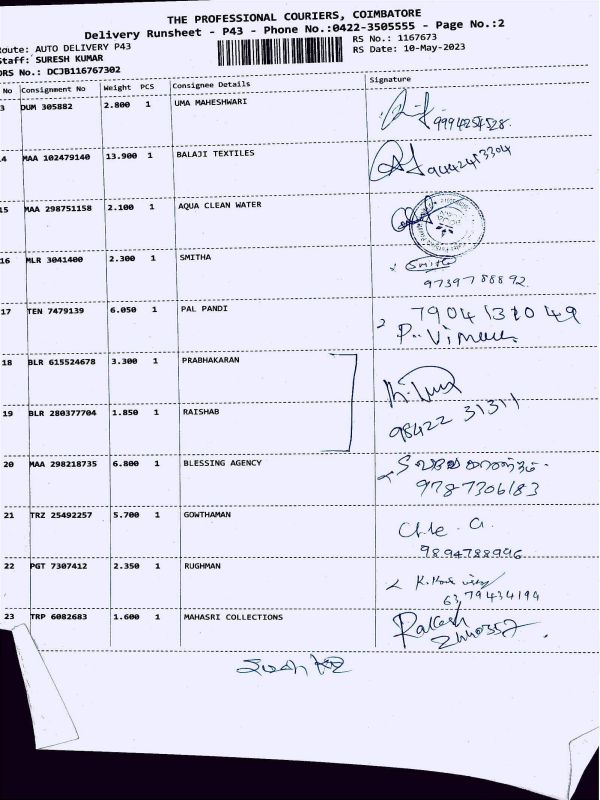 THE PROFESSIONAL COURIERS, COIMBATORE
Delivery Runsheet - P43 - Phone No.:0422-3505555 - Page No.:2
Route: AUTO DELIVERY P43 RS No.: 1167673
Staff: SURESH KUMAR RS Date: 10-May-2023
DRS No.: DCJB116767302
No Consignment No Weight PCS Consignee Details Signature
3 DUM 305882 2.800 1 UMA MAHESHWARI
9994254528
14 MAA 102479140 13.900 1 BALAJI TEXTILES
9442413304
15 MAA 298751158 2.100 1 AQUA CLEAN WATER
16 MLR 3041400 2.300 1 SMITHA Smitha
9739788892
17 TEN 7479139 6.050 1 PAL PANDI
18 BLR 615524678 3.300 1 PRABHAKARAN
19 BLR 280377704 1.850 1 RAISHAB 98422 31311
20 MAA 298218735 6.800 1 BLESSING AGENCY
9787306183
21 TRZ 25492257 5.700 1 GOWTHAMAN
9894788996
22 PGT 7307412 2.350 1 RUGHMAN
6379434194
23 TRP 6082683 1.600 1 MAHASRI COLLECTIONS Rakesh
2440357